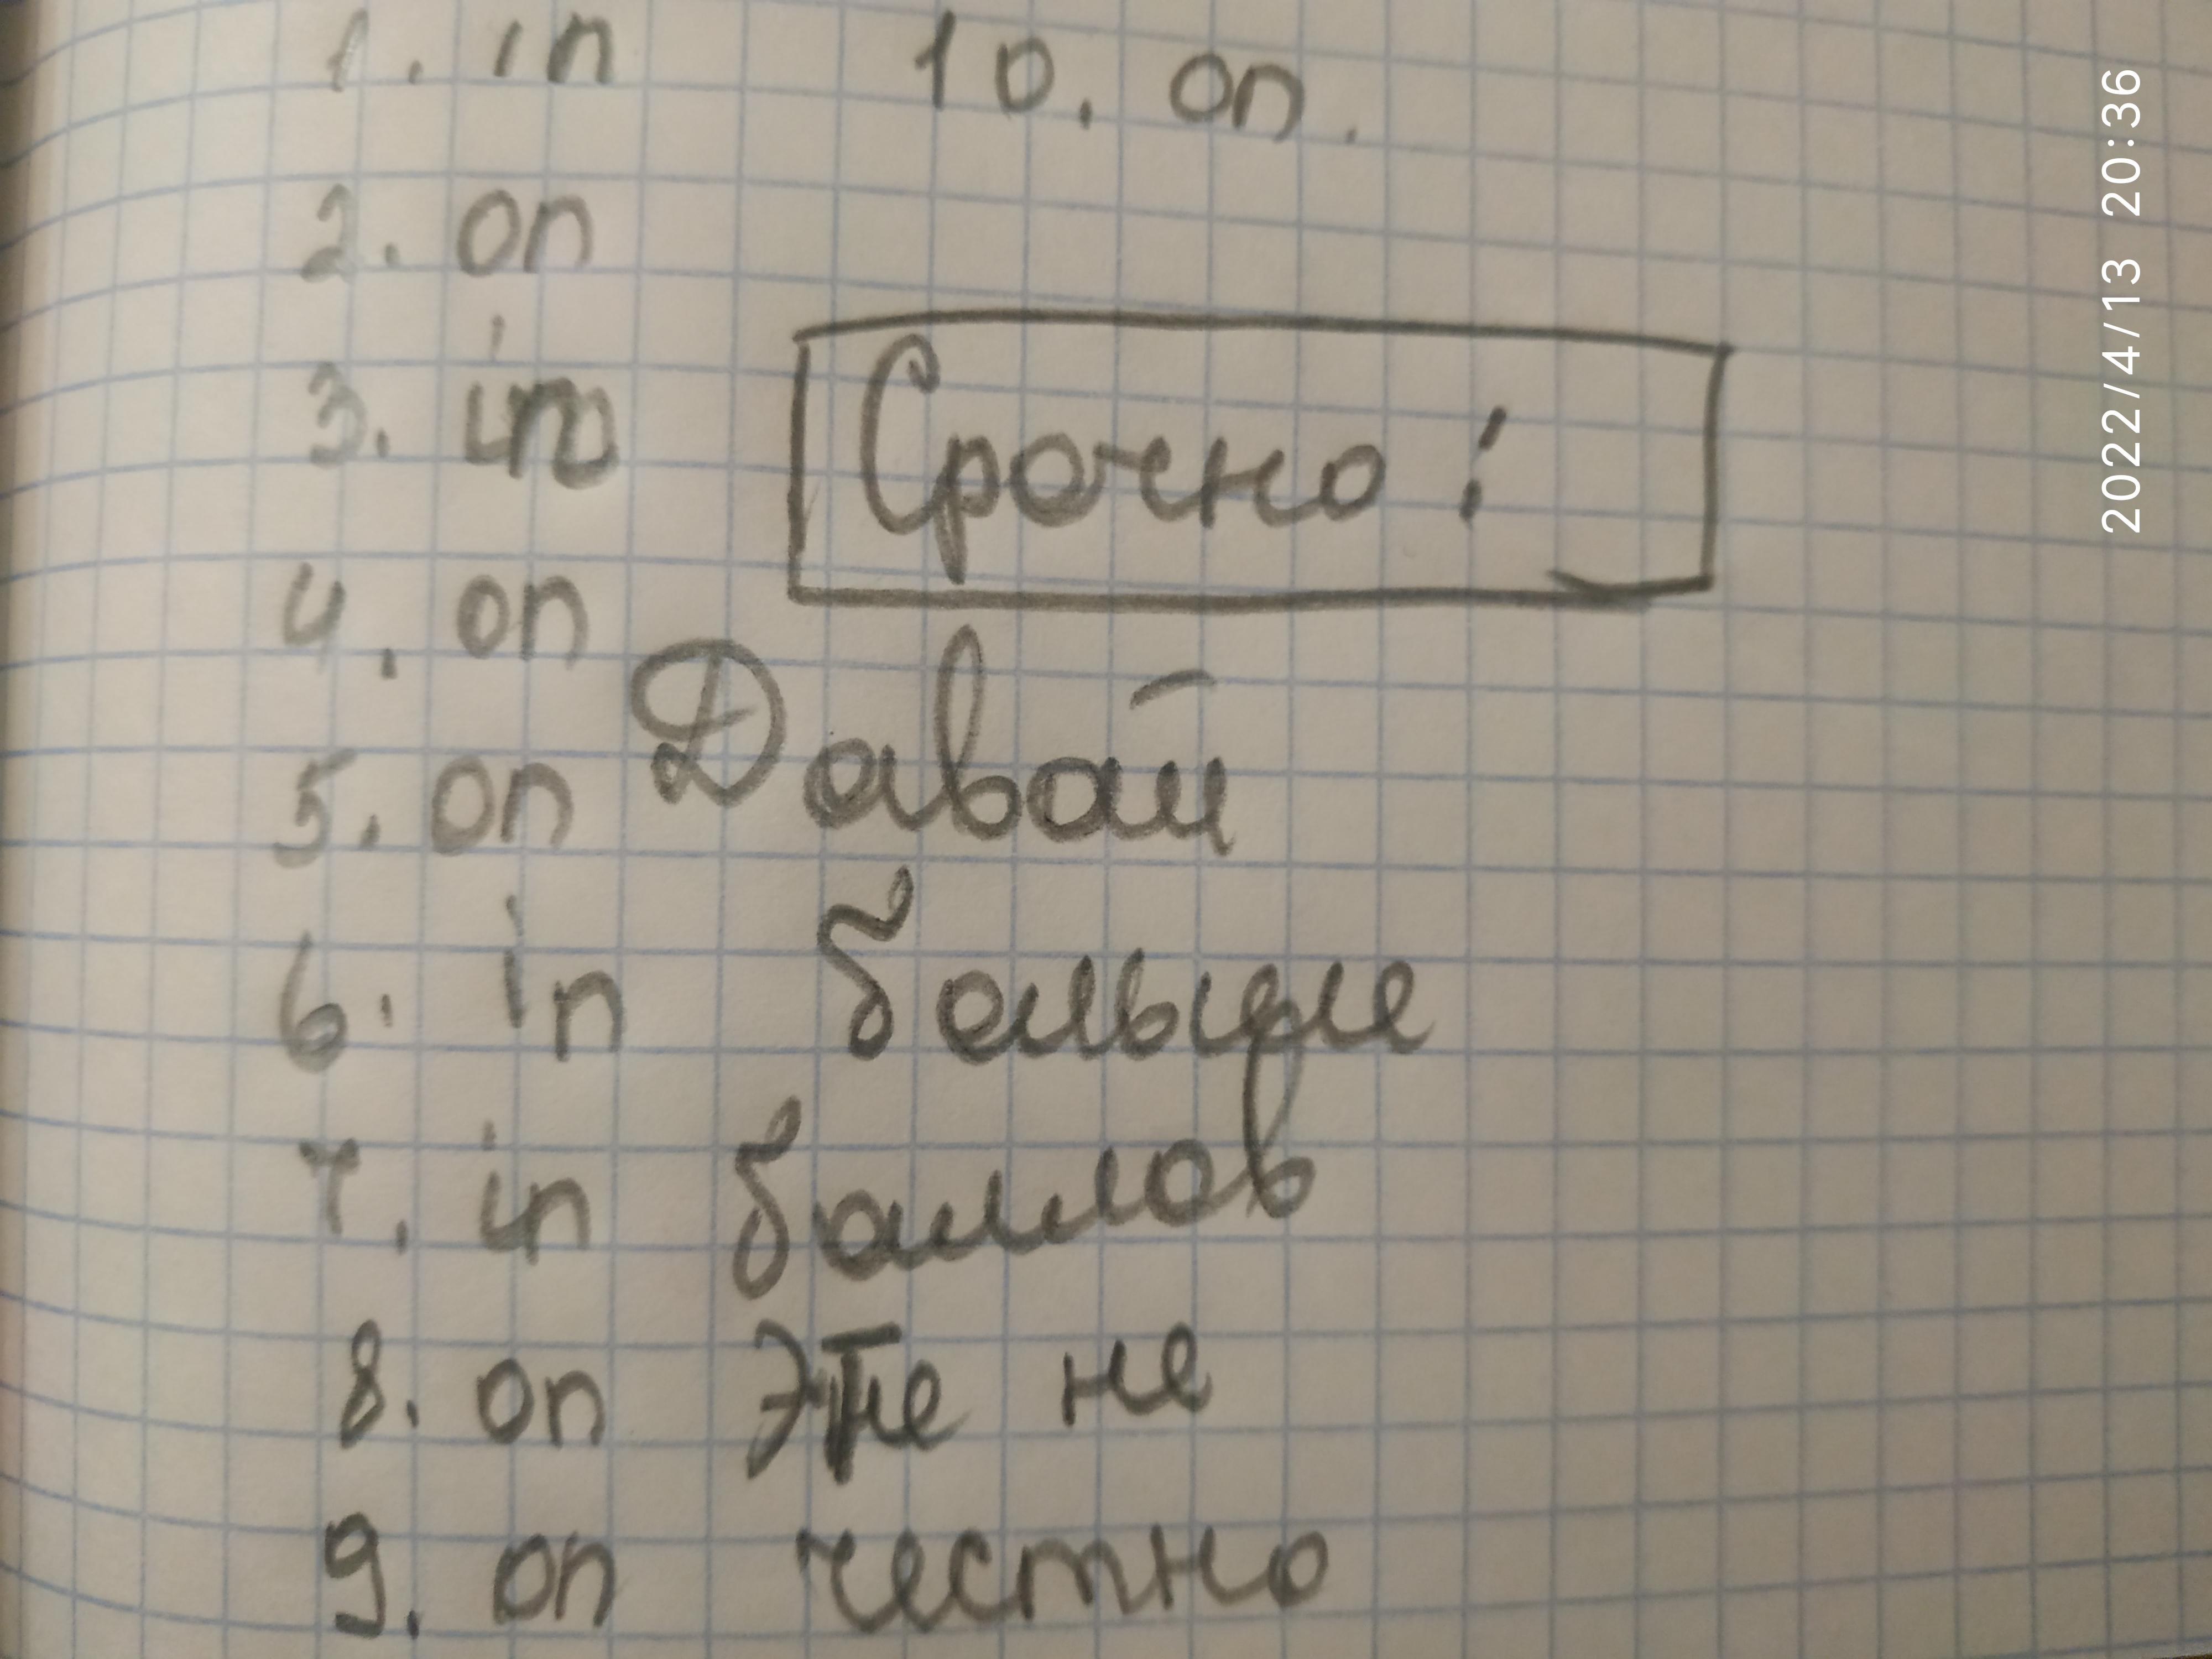 1. in
2. on
3. in
4. on
5. on
6. in
7. in
8. on
9. on
10. on.
Срочно!
Давай
больше
баллов
Это не
честно
2022/4/13 20:36